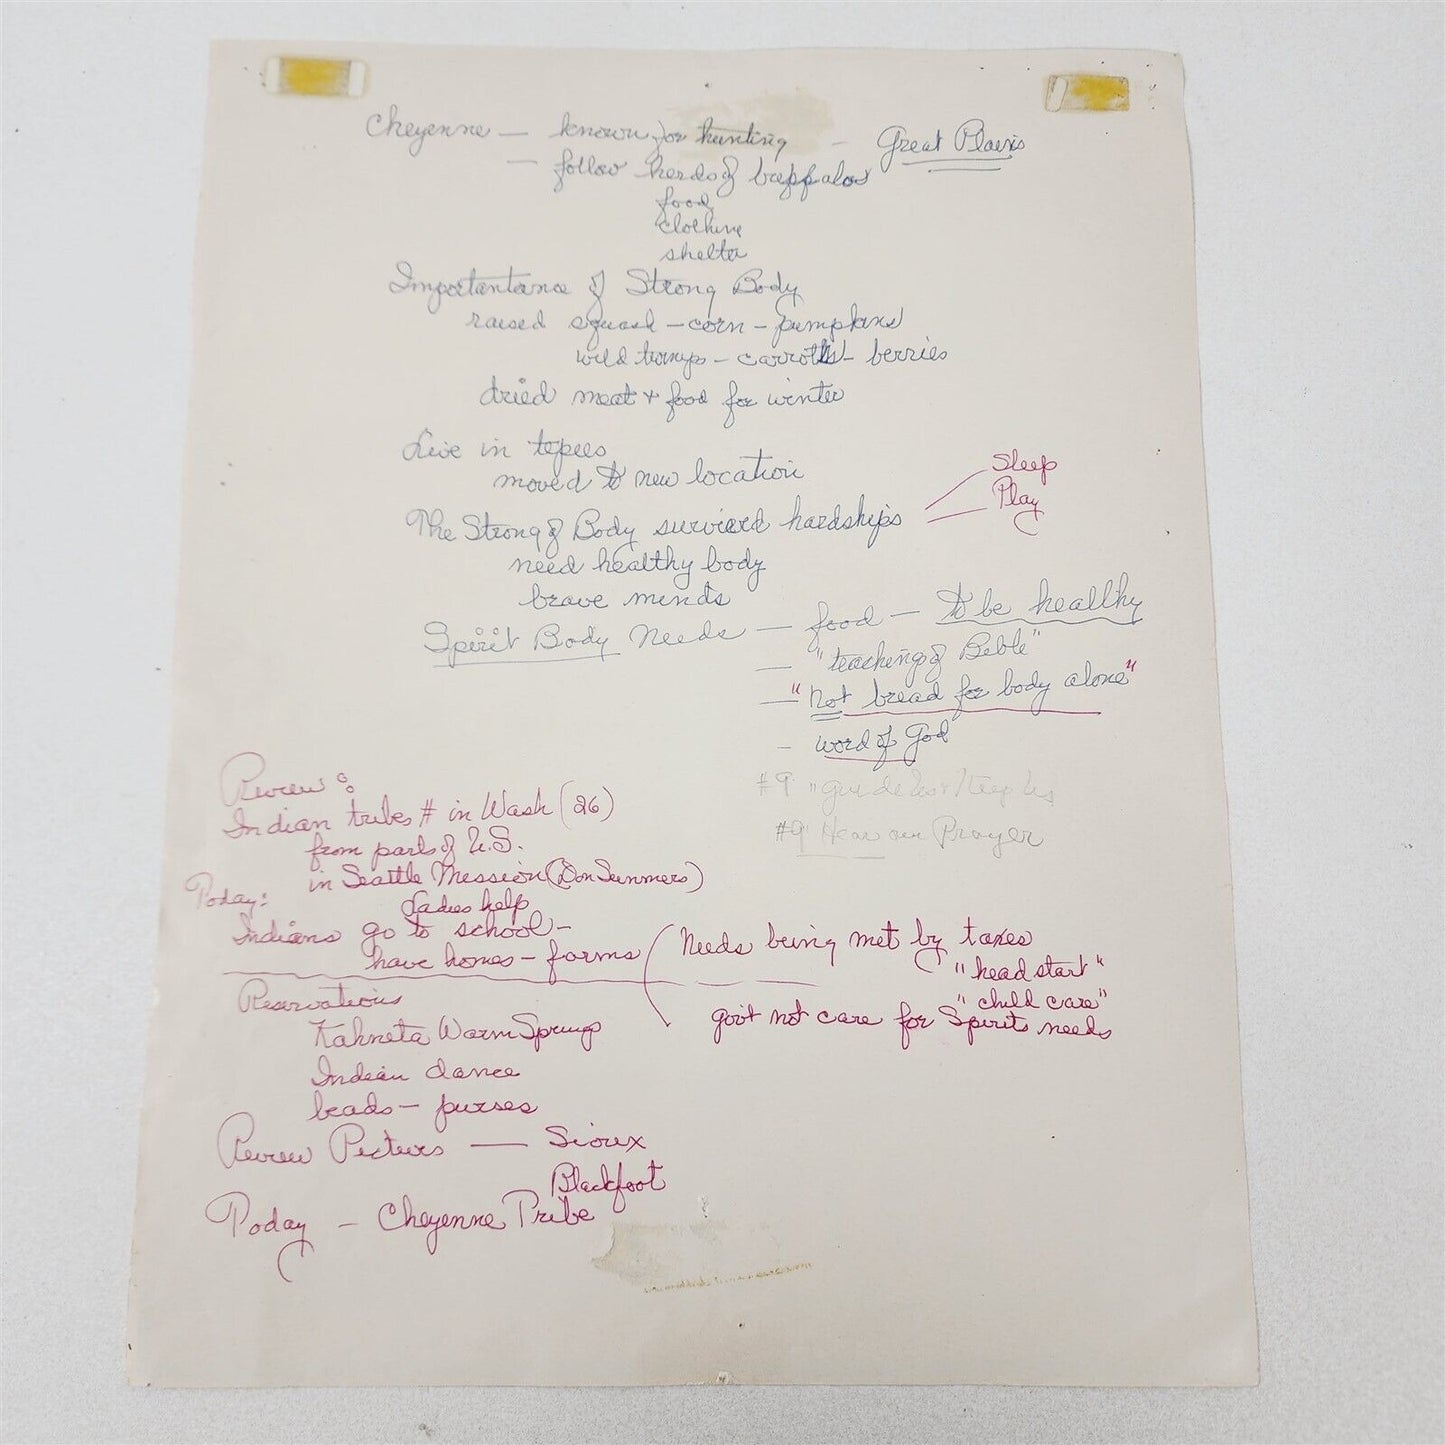 Cheyenne — known for hunting — Great Plains
— follow herds of buffalos
food
clothing
shelter
Importantance of Strong Body
raised squash — corn — pumpkins
wild turnips — carrots — berries
dried meat + food for winter
Live in tepees
moved to new location
Sleep
Play
The Strong of Body survived hardships
need healthy body
brave minds
Spirit Body Needs — food — to be healthy
— "teachings of Bible"
— "Not bread for body alone"
— word of God
#9 "Guide Us + Keep Us
#9 Hear our Prayer
Review:
Indian tribes # in Wash (26)
from parts of U.S.
in Seattle Mission (Don Summers)
Ladies help
Today:
Indians go to school —
have homes — farms
Needs being met by taxes
"head start"
"child care"
gov't not care for Spirits needs
Reservations
Kahneta Warm Springs
Indian dance
beads — purses
Review Picteurs — Sioux
Blackfoot
Today — Cheyenne Tribe